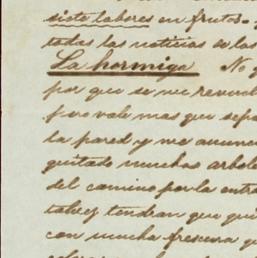 siete labores en frutos.
todas las noticias de las
La hormiga No
por que se me revuel
pero vale mas que sepa
la pared y me anunci
quitado muchos arbole
del camino por la entra
y tendran que qui
con mucha frescura q